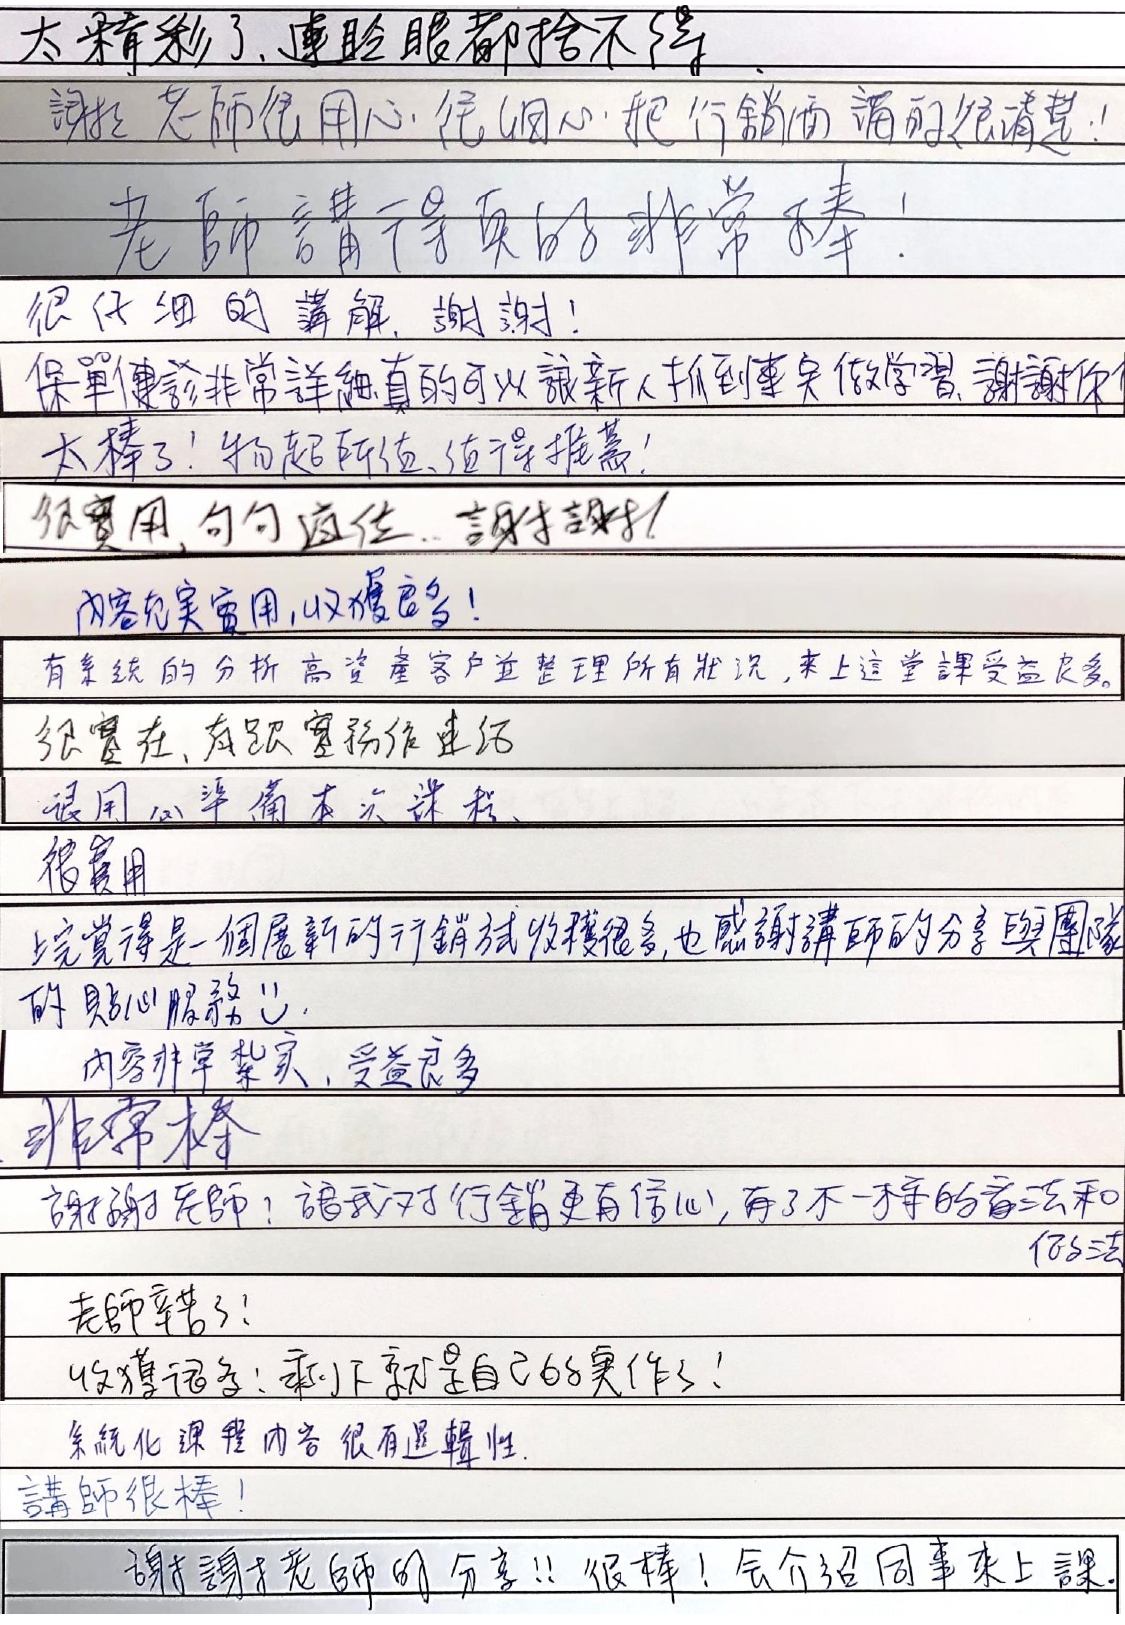 太精彩了、連眨眼都捨不得.
謝謝老師很用心.很細心.把行銷面講的很清楚!
老師講得真的非常棒!
很仔細的講解.謝謝!
保單健診非常詳細真的可以讓新人抓到事实做学習、謝謝你
太棒了!物超所值、值得推薦!
很實用,句句到位..謝謝!
內容充実實用,收獲良多!
有系統的分析高資產客戶並整理所有狀況,來上這堂課受益良多。
很實在、有跟實務作連結
很用心準備本次課程、
很實用
上完覺得是一個展新的行銷方式收穫很多,也感謝講師的分享與團隊
的貼心服務.
內容非常紮实,受益良多
非常棒
謝謝老師!讓我对行銷更有信心,有了不一樣的看法和
做法
老師辛苦了!
收獲很多!剩下就是自己的實作了!
系統化課程內容很有邏輯性.
講師很棒!
謝謝老師的分享!!很棒!会介紹同事來上課.